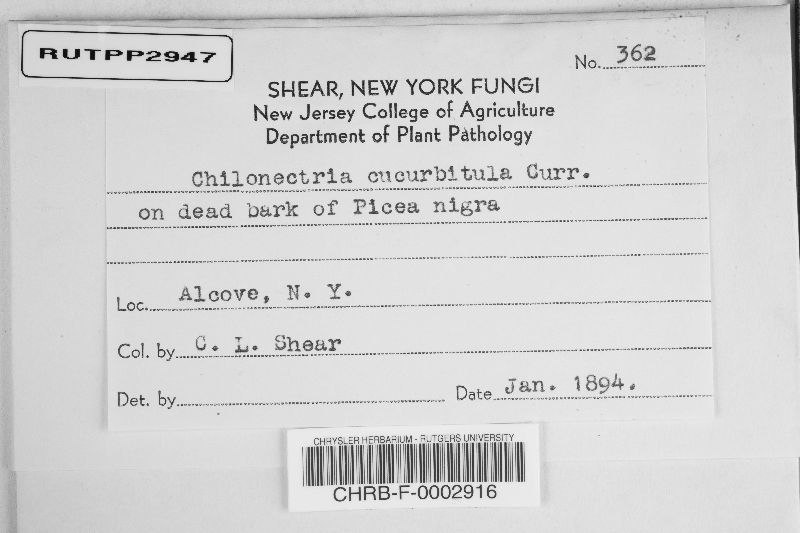 RUTPP2947
No. 362
SHEAR, NEW YORK FUNGI
New Jersey College of Agriculture
Department of Plant Pathology
Chilonectria cucurbitula Curr.
on dead bark of Picea nigra
Loc. Alcove, N. Y.
Col. by C. L. Shear
Det. by
Date Jan. 1894.
CHRYSLER HERBARIUM - RUTGERS UNIVERSITY
CHRB-F-0002916